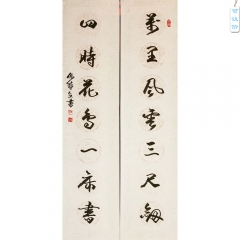 萬里風雲三尺劍
四時花鳥一床書